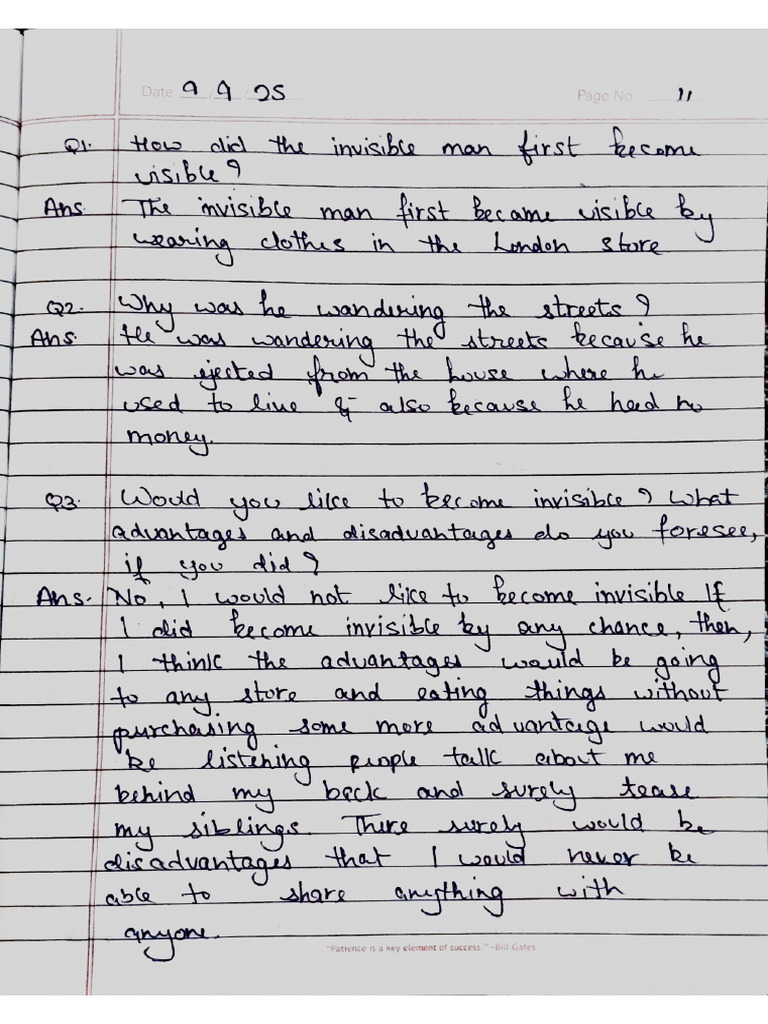 Date 9 / 9 / 25 Page No. 11
Q1. How did the invisible man first become
visible?
Ans The invisible man first became visible by
wearing clothes in the London store
Q2. Why was he wandering the streets?
Ans. He was wandering the streets because he
was ejected from the house where he
used to live & also because he had no
money.
Q3. Would you like to become invisible? What
advantages and disadvantages do you foresee,
if you did?
Ans. No, I would not like to become invisible If
I did become invisible by any chance, then,
I think the advantages would be going
to any store and eating things without
purchasing some more advantage would
be listening people talk about me
behind my back and surely tease
my siblings. There surely would be
disadvantages that I would never be
able to share anything with
anyone.
"Patience is a key element of success." -Bill Gates